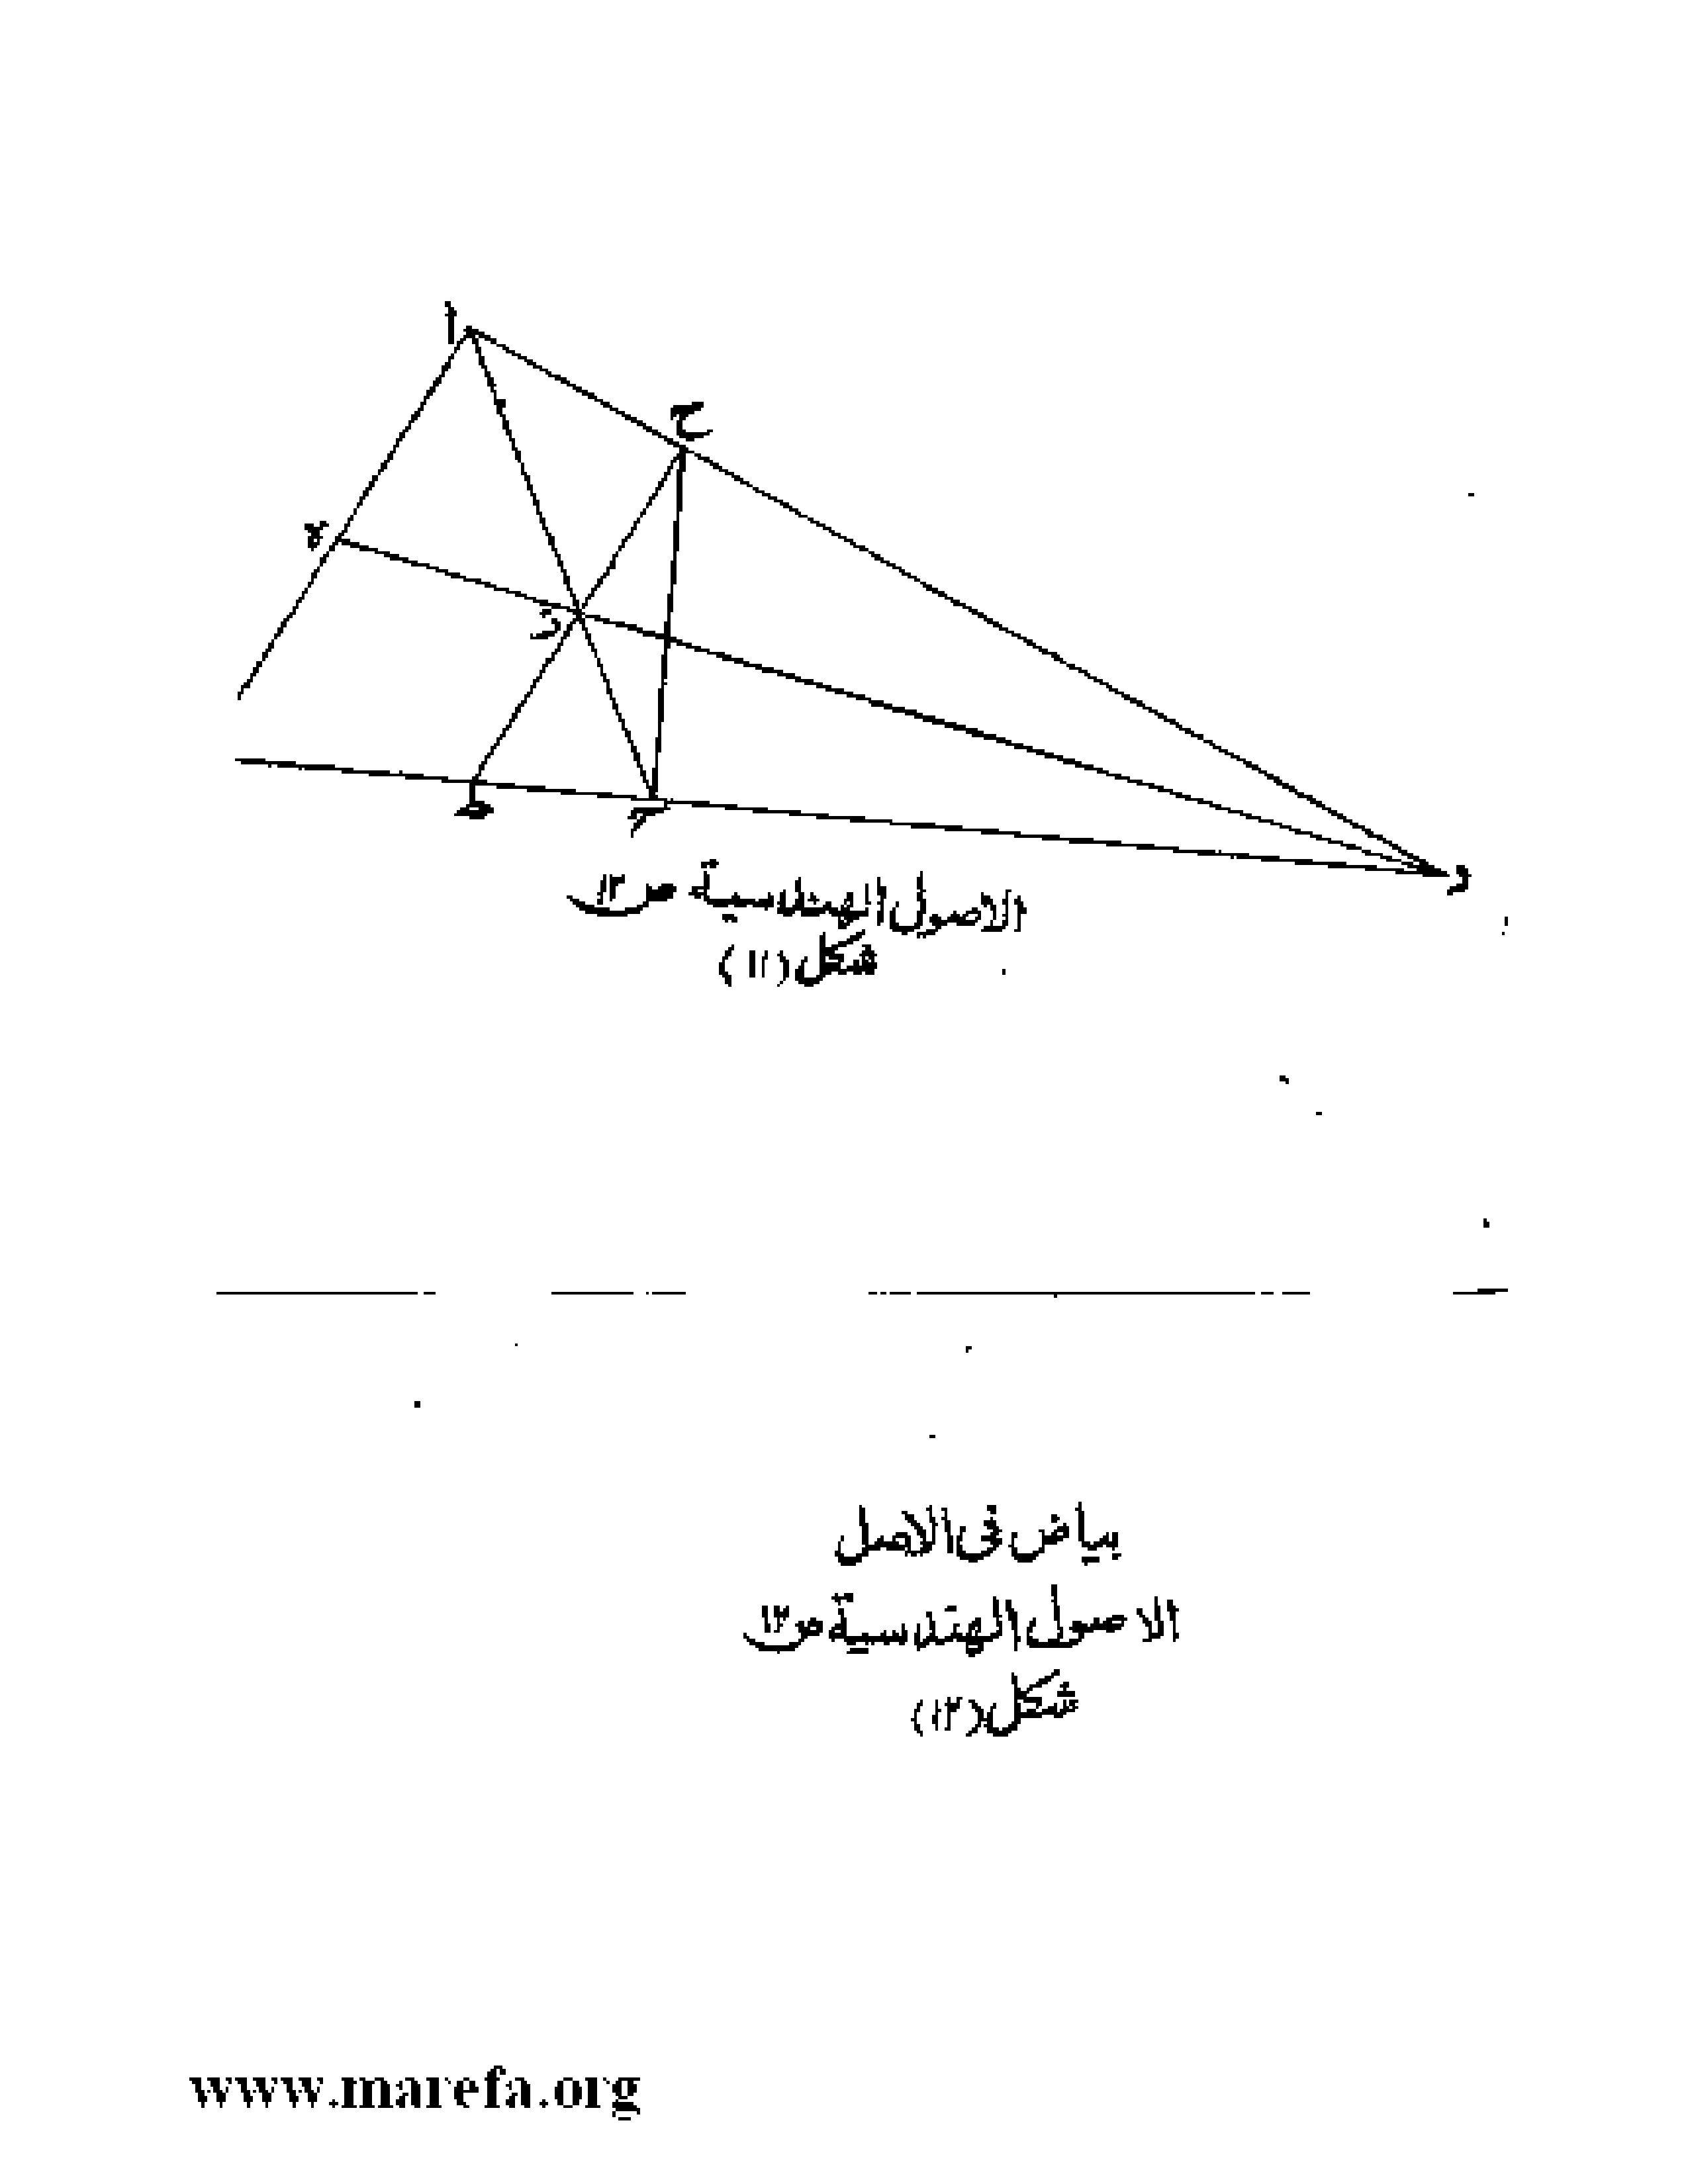 ا
ح
ء
ز
ط
ح
د
الاصول الهندسية ص ١٢
شكل (١١)
بياض فى الاصل
الاصول الهندسية ص ١٢
شكل (١٢)
www.marefa.org